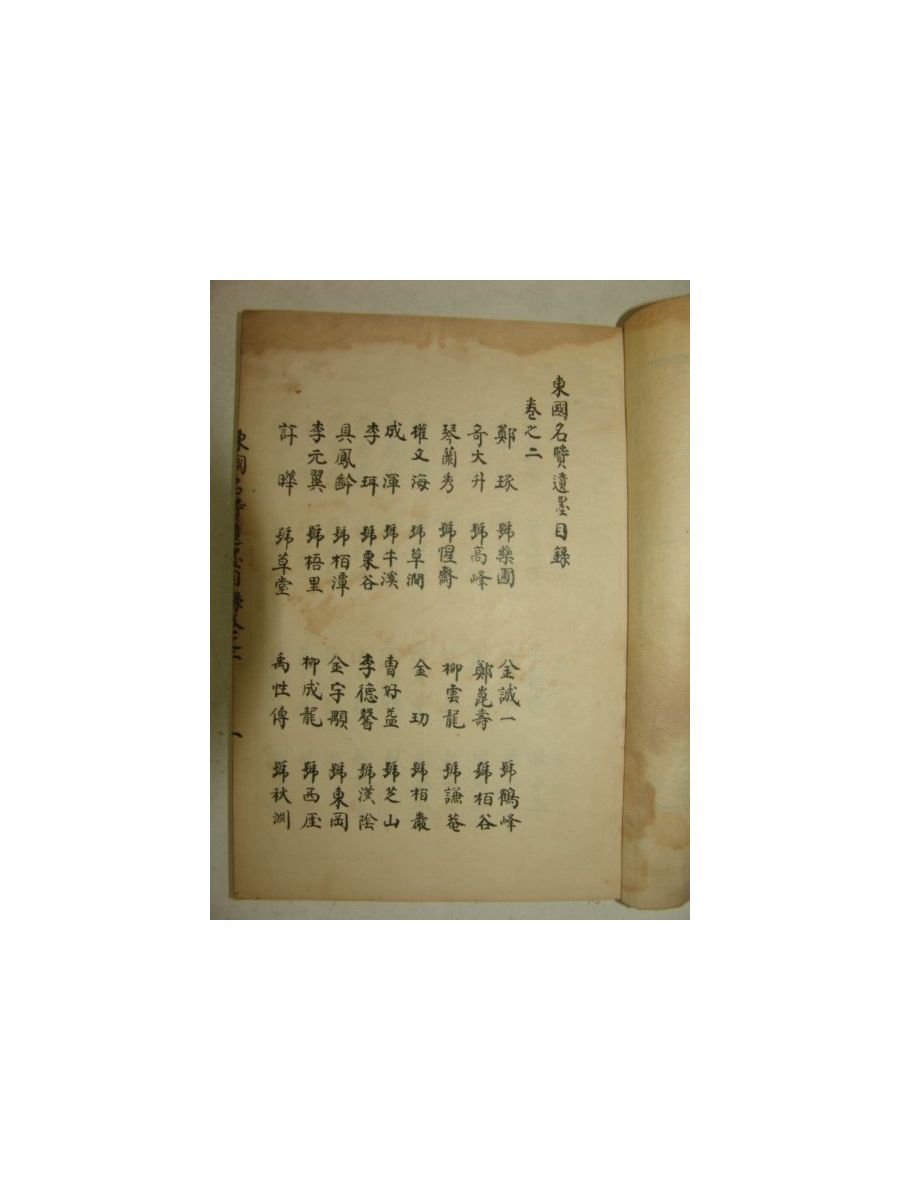 東國名賢遺墨目錄
卷之二
鄭琢 號樂圃 金誠一 號鶴峰
奇大升 號高峰 鄭崑壽 號栢谷
琴蘭秀 號惺齋 柳雲龍 號謙菴
權文海 號草澗 金玏 號栢巖
成渾 號牛溪 曺好益 號芝山
李珥 號栗谷 李德馨 號漢陰
具鳳齡 號栢潭 金宇顒 號東岡
李元翼 號梧里 柳成龍 號西厓
許曄 號草堂 禹性傳 號秋淵
東國名賢遺墨目錄卷之二 一